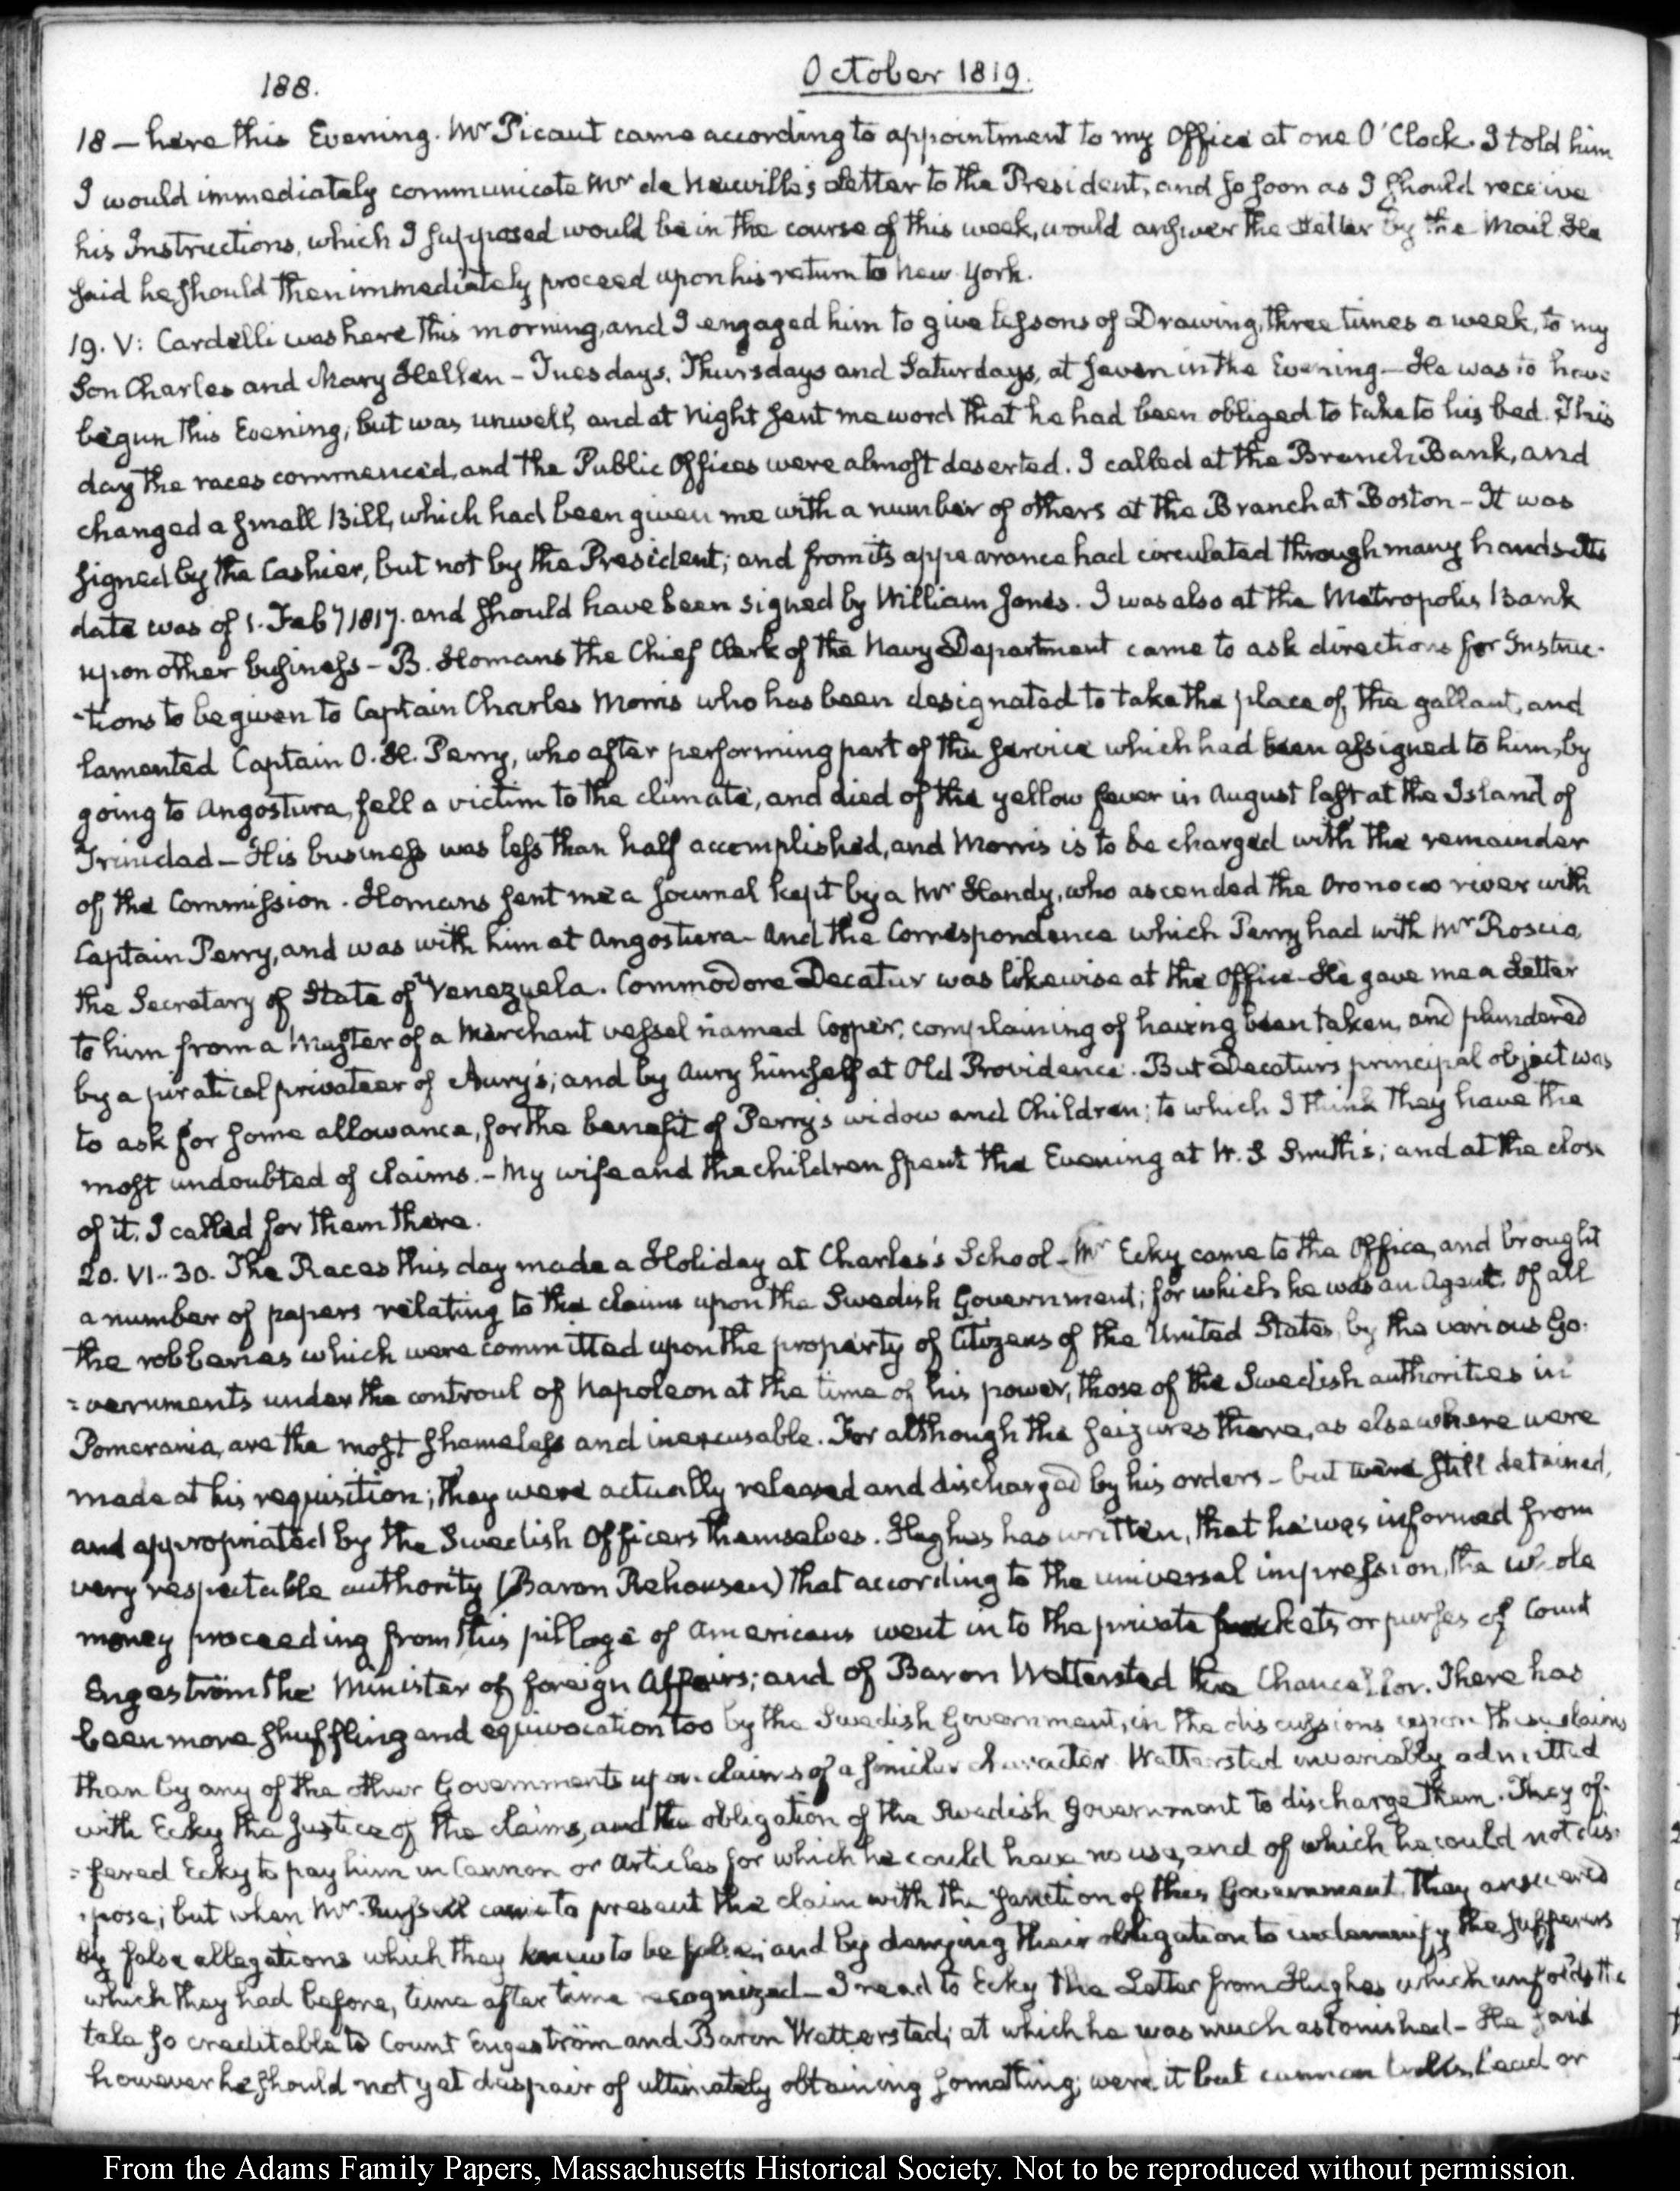 188.
October 1819.
18 — here this Evening. Mr Picaut came according to appointment to my Office at one O'Clock. I told him
I would immediately communicate Mr de Neuville's Letter to the President, and so soon as I should receive
his Instructions, which I supposed would be in the course of this week, would answer the Letter by the Mail. He
said he should then immediately proceed upon his return to New York.
19. V: Cardelli was here this morning, and I engaged him to give lessons of Drawing, three times a week, to my
Son Charles and Mary Hellen — Tuesdays, Thursdays and Saturdays, at seven in the Evening — He was to have
begun this Evening; but was unwell, and at Night sent me word that he had been obliged to take to his bed. This
day the races commenced, and the Public Offices were almost deserted. I called at the Branch Bank, and
changed a small Bill, which had been given me with a number of others at the Branch at Boston — It was
signed by the Cashier, but not by the President; and from its appearance had circulated through many hands — Its
date was of 1. Feby 1817. and should have been signed by William Jones. I was also at the Metropolis Bank
upon other business — B. Homans the Chief Clerk of the Navy Department came to ask directions for Instruc-
-tions to be given to Captain Charles Morris who has been designated to take the place of, the gallant, and
lamented Captain O. H. Perry, who after performing part of the service which had been assigned to him, by
going to Angostura, fell a victim to the climate, and died of the yellow fever in August last at the Island of
Trinidad — His business was less than half accomplished, and Morris is to be charged with the remainder
of the Commission. Homans sent me a Journal kept by a Mr Handy, who ascended the Oronoco river with
Captain Perry, and was with him at Angostura — And the Correspondence which Perry had with Mr Roscio,
the Secretary of State of Venezuela. Commodore Decatur was likewise at the Office — He gave me a Letter
to him from a Master of a Merchant vessel named Cosper; complaining of having been taken, and plundered
by a piratical privateer of Aury's; and by Aury himself at Old Providence. But Decatur's principal object was
to ask for some allowance, for the benefit of Perry's widow and Children; to which I think they have the
most undoubted of claims. — My wife and the children spent the Evening at W. S Smith's; and at the close
of it, I called for them there.
20. VI:30. The Races this day made a Holiday at Charles's School — Mr Ecky came to the Office, and brought
a number of papers relating to the claims upon the Swedish Government; for which he was an Agent. Of all
the robberies which were committed upon the property of Citizens of the United States, by the various Go-
=vernments under the controul of Napoleon at the time of his power, those of the Swedish authorities in
Pomerania, are the most shameless and inexcusable. For although the seizures there, as elsewhere were
made at his requisition; they were actually released and discharged by his orders — but were still detained,
and appropriated by the Swedish Officers themselves. Hughes has written, that he was informed from
very respectable authority (Baron Rehausen) that according to the universal impression, the whole
money proceeding from this pillage of Americans went in to the private pockets or purses of Count
Engeström the Minister of foreign Affairs; and of Baron Wetterstedt the Chancellor. There has
been more shuffling and equivocation too by the Swedish Government, in the discussions upon these claims
than by any of the other Governments upon claims of a similar character. Wetterstedt invariably admitted
with Ecky the Justice of the claims, and the obligation of the Swedish Government to discharge them. They of-
=fered Ecky to pay him in Cannon or Articles for which he could have no use, and of which he could not dis-
-pose; but when Mr Russell came to present the claim with the sanction of this Government, they answered
by false allegations which they knew to be false; and by denying their obligation to indemnify the sufferers
which they had before, time after time recognized — I read to Ecky the Letter from Hughes which unfolds the
tale so creditable to Count Engeström and Baron Wetterstedt; at which he was much astonished — He said
however he should not yet despair of ultimately obtaining something; were it but cannon balls, Lead or
From the Adams Family Papers, Massachusetts Historical Society. Not to be reproduced without permission.